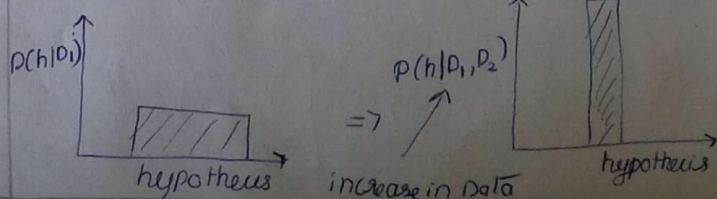 P(h|D₁)
hypotheus
=>
P(h|D₁, D₂)
increase in Data
hypotheuis